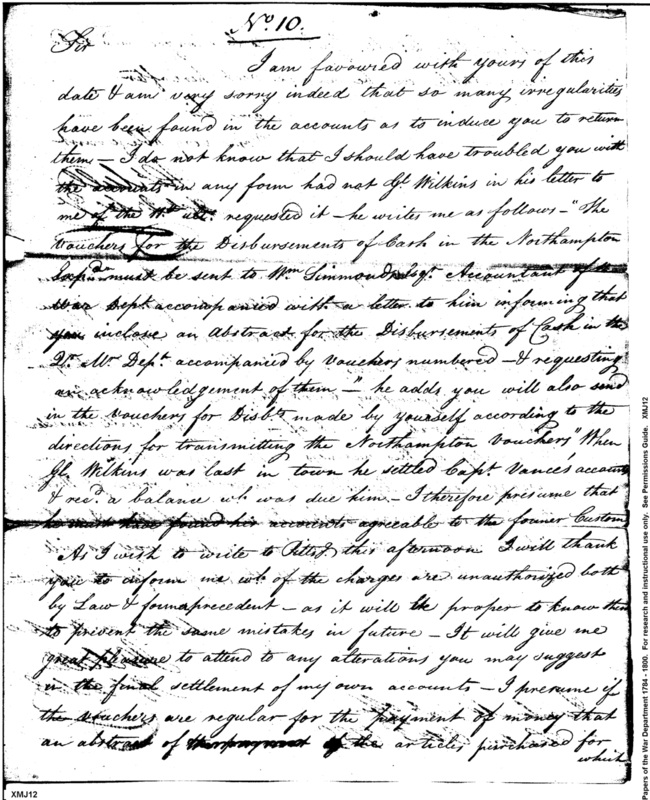 No. 10.
Sir
I am favoured with yours of this
date & am very sorry indeed that so many irregularities
have been found in the accounts as to induce you to return
them — I do not know that I should have troubled you with
the accounts in any form had not Gl. Wilkins in his letter to
me of the ulto. requested it — he writes me as follows — "The
Vouchers for the Disbursements of Cash in the Northampton
Expedn. must be sent to Wm. Simmonds Esqr. Accountant of the
War Dept. accompanied with a letter to him informing that
you inclose an Abstract for the Disbursements of Cash in the
Qr. Mr. Dept. accompanied by Vouchers numbered — & requesting
an acknowledgement of them —" he adds, you will also send
in the Vouchers for Disbts. made by yourself according to the
directions for transmitting the Northampton Vouchers" When
Gl. Wilkins was last in town he settled Capt Vance's account
& recd. a balance wh. was due him — I therefore presume that
he must have found his accounts agreeable to the former Custom
As I wish to write to Pittsg. this afternoon I will thank
you to inform me wh. of the charges are unauthorized both
by Law & former precedent — as it will be proper to know them
to prevent the same mistakes in future — It will give me
great pleasure to attend to any alterations you may suggest
in the final settlement of my own accounts — I presume if
the vouchers are regular for the payment of money that
an abstract of the articles purchased for
which
XMJ12
Papers of the War Department 1784 - 1800. For research and instructional use only. See Permissions Guide. XMJ12